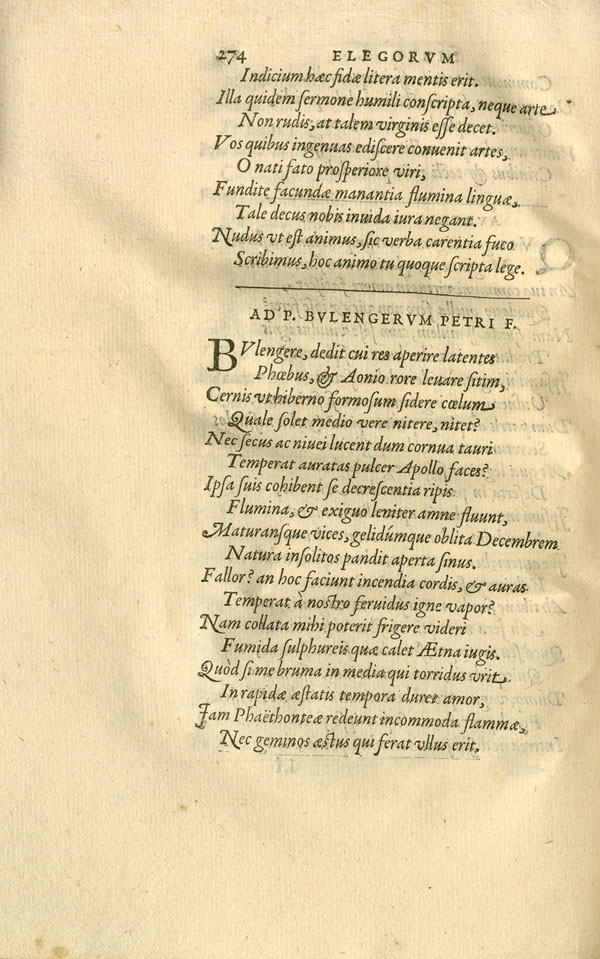 274 ELEGORVM
Indicium hæc fidæ litera mentis erit.
Illa quidem sermone humili conscripta, neque arte
Non rudis, at talem virginis esse decet.
Vos quibus ingenuas ediscere conuenit artes,
O nati fato prosperiore viri,
Fundite facundæ manantia flumina linguæ,
Tale decus nobis inuida iura negant.
Nudus vt est animus, sic verba carentia fuco
Scribimus, hoc animo tu quoque scripta lege.
AD P. BVLENGERVM PETRI F.
BVlengere, dedit cui res aperire latentes
Phœbus, & Aonio rore leuare sitim,
Cernis vt hiberno formosum sidere cœlum
Quale solet medio vere nitere, nitet?
Nec secus ac niuei lucent dum cornua tauri
Temperat auratas pulcer Apollo faces?
Ipsa suis cohibent se decrescentia ripis
Flumina, & exiguo leniter amne fluunt,
Maturansque vices, gelidúmque oblita Decembrem
Natura insolitos pandit aperta sinus.
Fallor? an hoc faciunt incendia cordis, & auras
Temperat à nostro feruidus igne vapor?
Nam collata mihi poterit frigere videri
Fumida sulphureis quæ calet Ætna iugis.
Quòd si me bruma in media qui torridus vrit
In rapidæ æstatis tempora duret amor,
Iam Phaëthonteæ redeunt incommoda flammæ,
Nec geminos æstus qui ferat vllus erit.